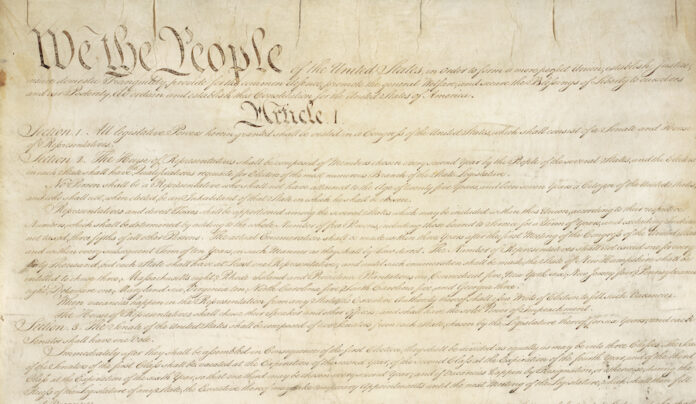 We the People of the United States, in Order to form a more perfect Union, establish Justice,
insure domestic Tranquility, provide for the common defence, promote the general Welfare, and secure the Blessings of Liberty to ourselves
and our Posterity, do ordain and establish this Constitution for the United States of America.
Article. I.
Section. 1. All legislative Powers herein granted shall be vested in a Congress of the United States, which shall consist of a Senate and House
of Representatives.
Section. 2. The House of Representatives shall be composed of Members chosen every second Year by the People of the several States, and the Electors
in each State shall have Qualifications requisite for Electors of the most numerous Branch of the State Legislature.
No Person shall be a Representative who shall not have attained to the Age of twenty five Years, and been seven Years a Citizen of the United States,
and who shall not, when elected, be an Inhabitant of that State in which he shall be chosen.
Representatives and direct Taxes shall be apportioned among the several States which may be included within this Union, according to their respective
Numbers, which shall be determined by adding to the whole Number of free Persons, including those bound to Service for a Term of Years, and excluding Indians
not taxed, three fifths of all other Persons. The actual Enumeration shall be made within three Years after the first Meeting of the Congress of the United States,
and within every subsequent Term of ten Years, in such Manner as they shall by Law direct. The Number of Representatives shall not exceed one for every
thirty Thousand, but each State shall have at Least one Representative; and until such enumeration shall be made, the State of New Hampshire shall be
entitled to chuse three, Massachusetts eight, Rhode Island and Providence Plantations one, Connecticut five, New York six, New Jersey four, Pennsylvania
eight, Delaware one, Maryland six, Virginia ten, North Carolina five, South Carolina five, and Georgia three.
When vacancies happen in the Representation from any State, the Executive Authority thereof shall issue Writs of Election to fill such Vacancies.
The House of Representatives shall chuse their Speaker and other Officers; and shall have the sole Power of Impeachment.
Section. 3. The Senate of the United States shall be composed of two Senators from each State, chosen by the Legislature thereof, for six Years; and each
Senator shall have one Vote.
Immediately after they shall be assembled in Consequence of the first Election, they shall be divided as equally as may be into three Classes. The Seats
of the Senators of the first Class shall be vacated at the Expiration of the second Year, of the second Class at the Expiration of the fourth Year, and of the third
Class at the Expiration of the sixth Year, so that one third may be chosen every second Year; and if Vacancies happen by Resignation, or otherwise, during the
Recess of the Legislature of any State, the Executive thereof may make temporary Appointments until the next Meeting of the Legislature, which shall then fill